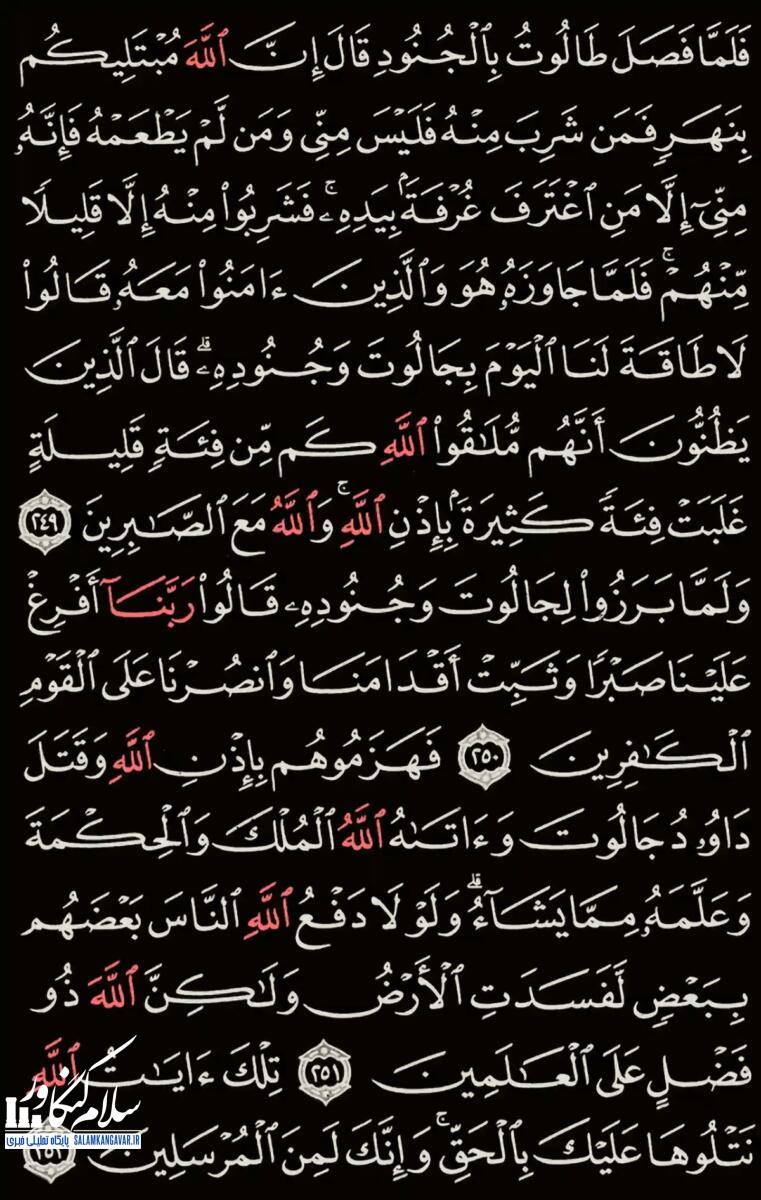 فَلَمَّا فَصَلَ طَالُوتُ بِٱلْجُنُودِ قَالَ إِنَّ ٱللَّهَ مُبْتَلِيكُم
بِنَهَرٍ فَمَن شَرِبَ مِنْهُ فَلَيْسَ مِنِّي وَمَن لَّمْ يَطْعَمْهُ فَإِنَّهُۥ
مِنِّيٓ إِلَّا مَنِ ٱغْتَرَفَ غُرْفَةَۢ بِيَدِهِۦۚ فَشَرِبُوا۟ مِنْهُ إِلَّا قَلِيلًا
مِّنْهُمْۚ فَلَمَّا جَاوَزَهُۥ هُوَ وَٱلَّذِينَ ءَامَنُوا۟ مَعَهُۥ قَالُوا۟
لَا طَاقَةَ لَنَا ٱلْيَوْمَ بِجَالُوتَ وَجُنُودِهِۦۚ قَالَ ٱلَّذِينَ
يَظُنُّونَ أَنَّهُم مُّلَـٰقُوا۟ ٱللَّهِ كَم مِّن فِئَةٍ قَلِيلَةٍ
غَلَبَتْ فِئَةً كَثِيرَةَۢ بِإِذْنِ ٱللَّهِۗ وَٱللَّهُ مَعَ ٱلصَّـٰبِرِينَ ٢٤٩
وَلَمَّا بَرَزُوا۟ لِجَالُوتَ وَجُنُودِهِۦ قَالُوا۟ رَبَّنَآ أَفْرِغْ
عَلَيْنَا صَبْرًا وَثَبِّتْ أَقْدَامَنَا وَٱنصُرْنَا عَلَى ٱلْقَوْمِ
ٱلْكَـٰفِرِينَ ٢٥٠ فَهَزَمُوهُم بِإِذْنِ ٱللَّهِ وَقَتَلَ
دَاوُۥدُ جَالُوتَ وَءَاتَىٰهُ ٱللَّهُ ٱلْمُلْكَ وَٱلْحِكْمَةَ
وَعَلَّمَهُۥ مِمَّا يَشَآءُۗ وَلَوْلَا دَفْعُ ٱللَّهِ ٱلنَّاسَ بَعْضَهُم
بِبَعْضٍ لَّفَسَدَتِ ٱلْأَرْضُ وَلَـٰكِنَّ ٱللَّهَ ذُو
فَضْلٍ عَلَى ٱلْعَـٰلَمِينَ ٢٥١ تِلْكَ ءَايَـٰتُ ٱللَّهِ
نَتْلُوهَا عَلَيْكَ بِٱلْحَقِّۚ وَإِنَّكَ لَمِنَ ٱلْمُرْسَلِينَ ٢٥٢
سلام کنگاور
پایگاه تحلیلی خبری SALAMKANGAVAR.IR